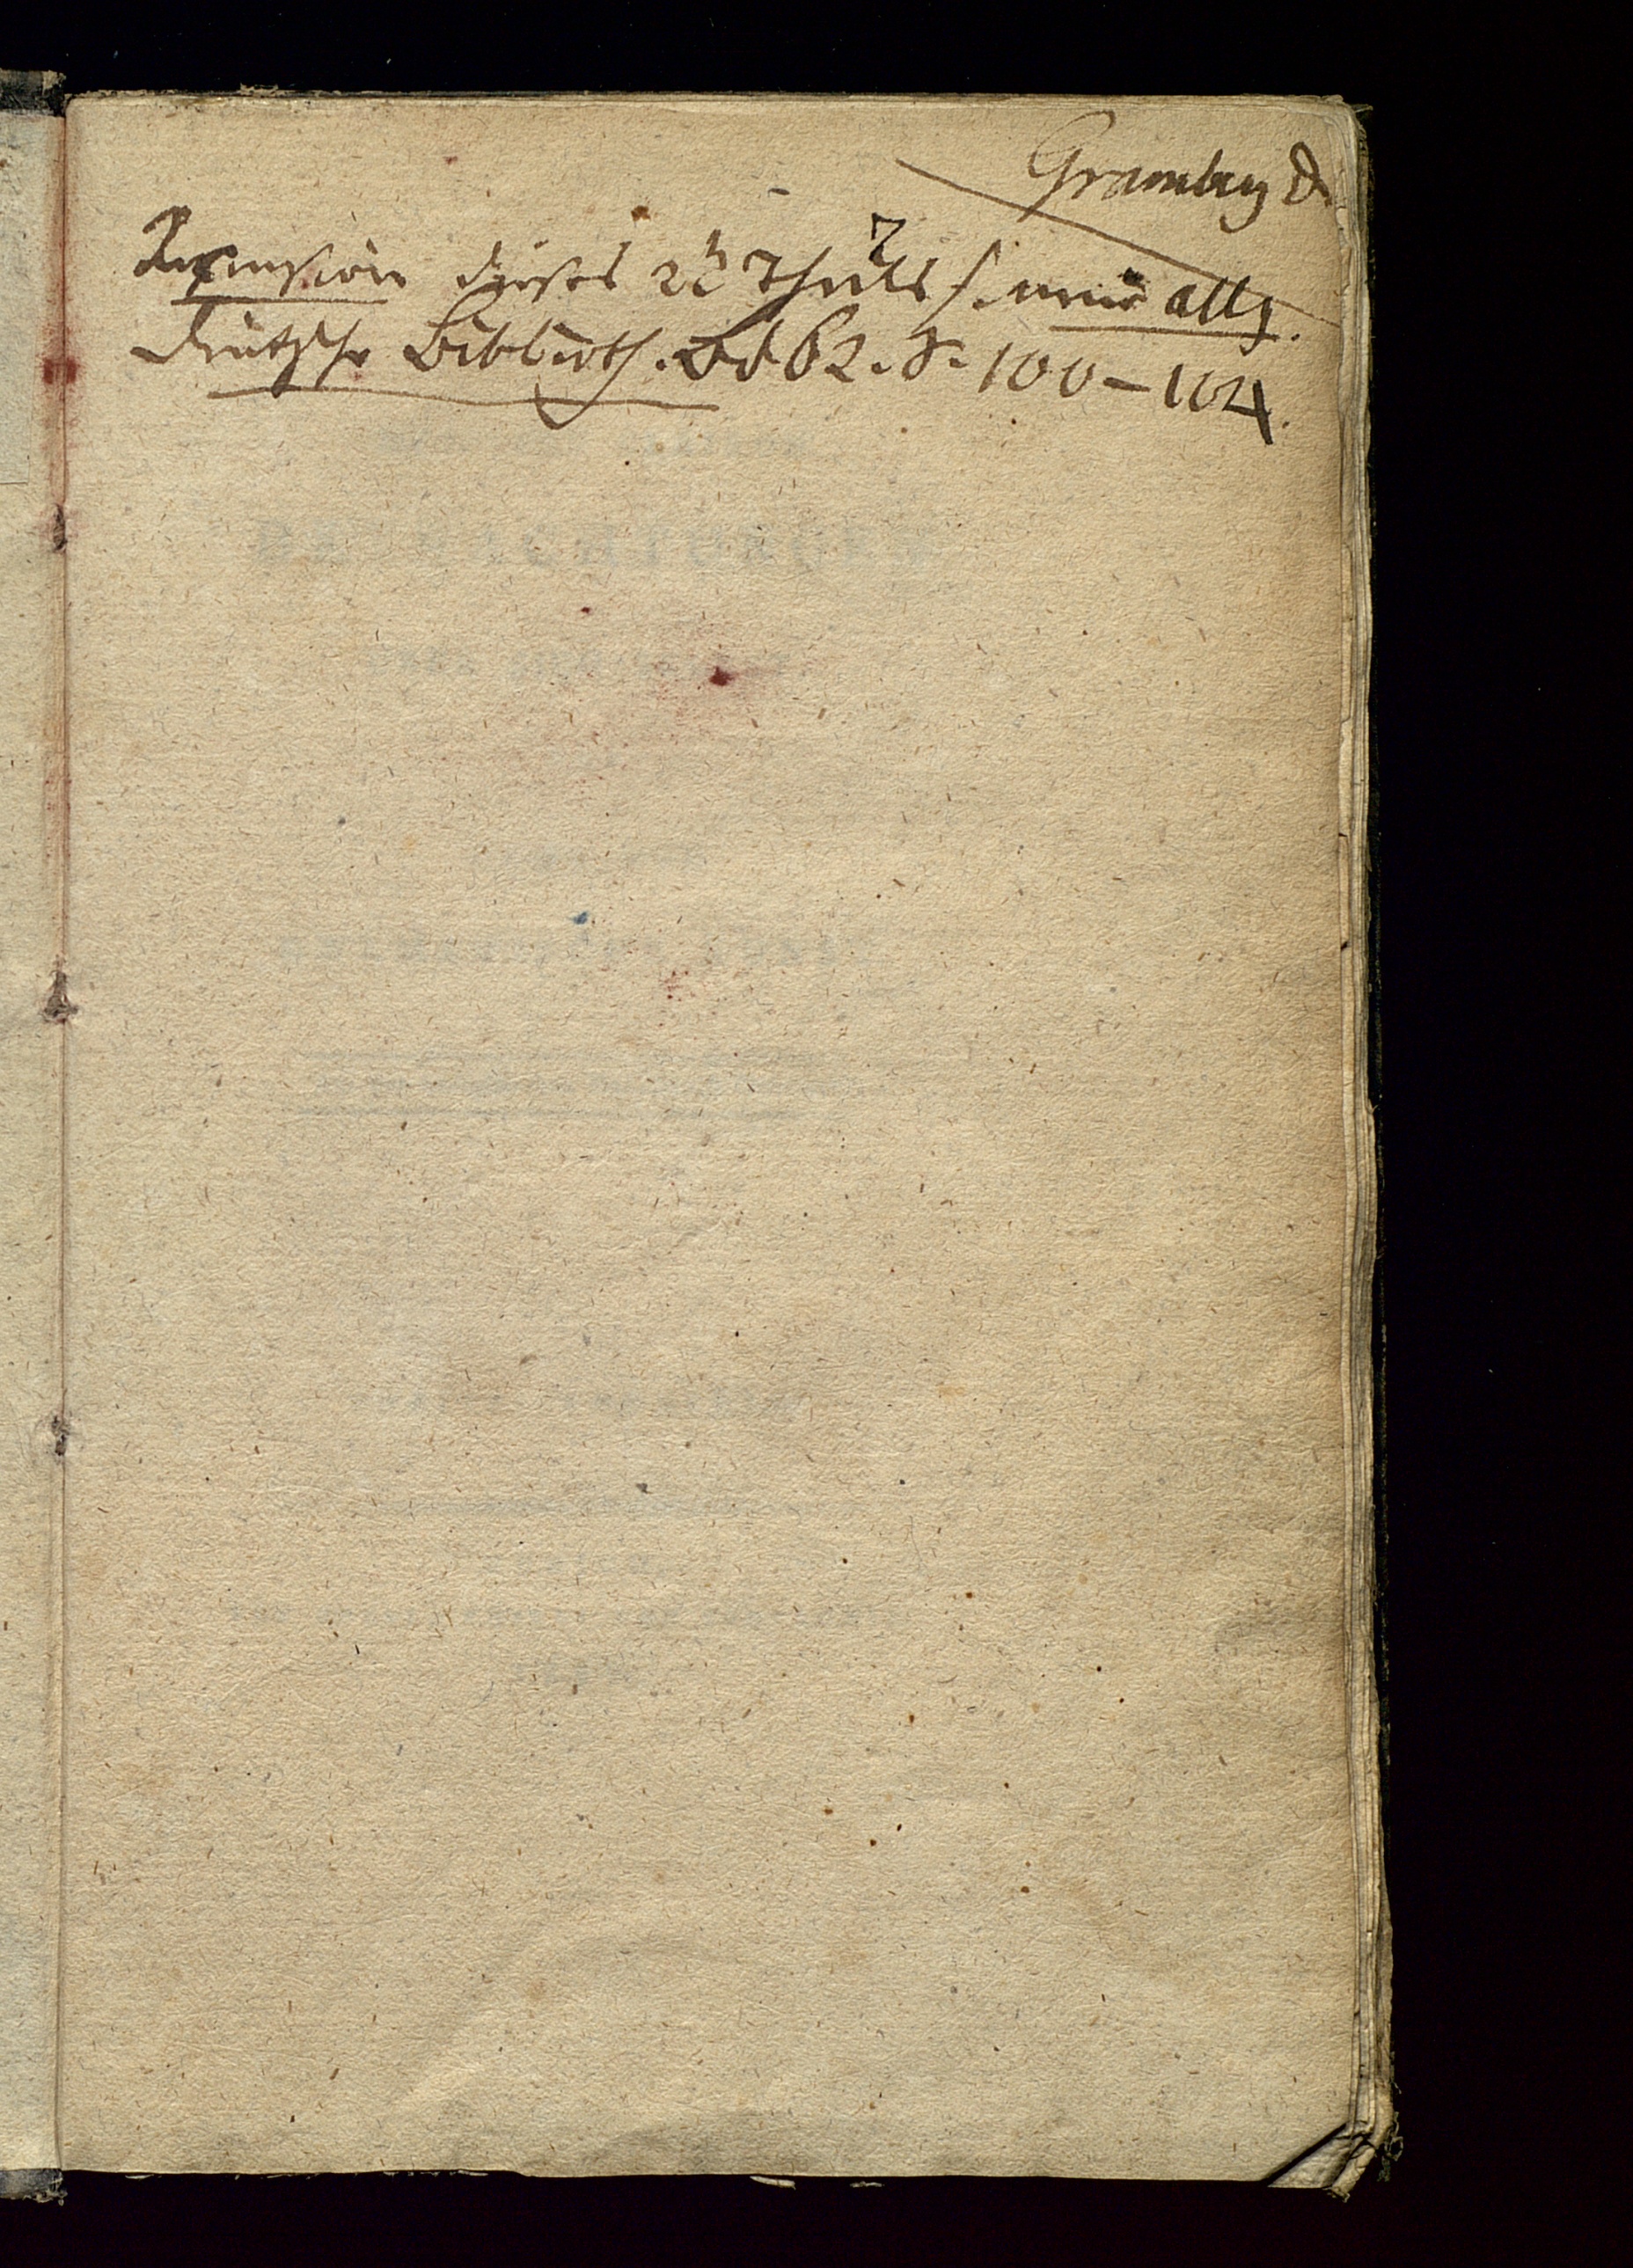 Gramberg D.
Recension dieses 2t Theils s. neue allg.
deutsche Biblioth. Bd 62. S. 100–104.